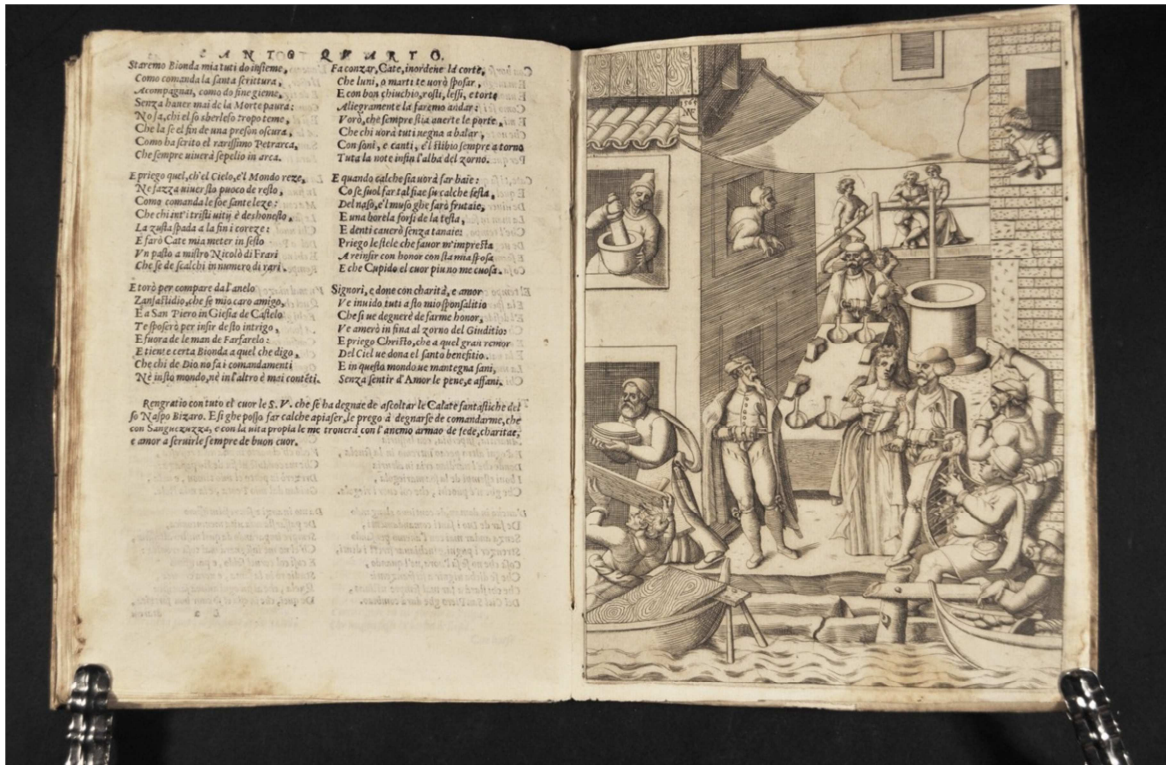 CANTO QVARTO.
Staremo Bionda mia tuti do insieme,
Como comanda la santa scrittura,
Acompagnai, como do fine gieme,
Senza hauer mai de la Morte paura:
No sa, chi el so sberleso tropo teme,
Che la se el fin de una preson oscura,
Como ha scrito el rarissimo Petrarca,
Che sempre uiuerà sepelio in arca.
E priego quel, ch'el Cielo, e'l Mondo reze,
Ne fazza uiuer sto puoco de resto,
Como comanda le soe sante leze:
Che chi int'i tristi uitij è deshonesto,
La zusta spada a la fin i coreze:
E farò Cate mia meter in sesto
Vn pasto a mistro Nicolò di Frari
Che se de scalchi in numero di rari.
E torò per compare da l'anelo
Zanfastidio, che se mio caro amigo,
E a San Piero in Giesia de Castelo
Te sposerò per insir de sto intrigo,
E fuora de le man de Farfarelo:
E tiente certa Bionda a quel che digo,
Che chi de Dio no fa i comandamenti
Nè in sto mondo, nè in l'altro è mai contēti.
Fa conzar, Cate, in ordene la corte,
Che luni, o marti te uorò sposar,
E con bon chiuchio, rosti, lessi, e torte
Allegramente la faremo andar:
Vorò, che sempre stia auerte le porte,
Che chi uorà tuti uegna a balar,
Con soni, e canti, e'l stibio sempre a torno
Tuta la note infin l'alba del zorno.
E quando calche sia uorà far baie:
Co se suol far tal fiae su calche festa,
Del naso, e'l muso ghe farò frutaie,
E una horela forsi de la testa,
E denti cauerò senza tanaie:
Priego le stele che fauor m'impresta
A reinsir con honor con sta mia sposa
E che Cupido el cuor piu no me cuosa.
Signori, e done con charità, e amor
Ve inuido tuti a sto mio sponsalitio
Che si ue degnerè de farme honor,
Ve amerò in fina al zorno del Giuditio:
E priego Christo, che a quel gran remor
Del Ciel ue dona el santo benefitio.
E in questo mondo ue mantegna sani,
Senza sentir d'Amor le pene, e affani.
Rengratio con tuto el cuor le S. V. che se ha degnae de ascoltar le Calate fantastiche del
so Naspo Bizaro. E si ghe posso far calche apiaser, le prego à degnarse de comandarme, che
con Sanguezuzza, e con la uita propia le me trouerà con l'anemo armao de fede, charitae,
e amor a seruirle sempre de buon cuor.